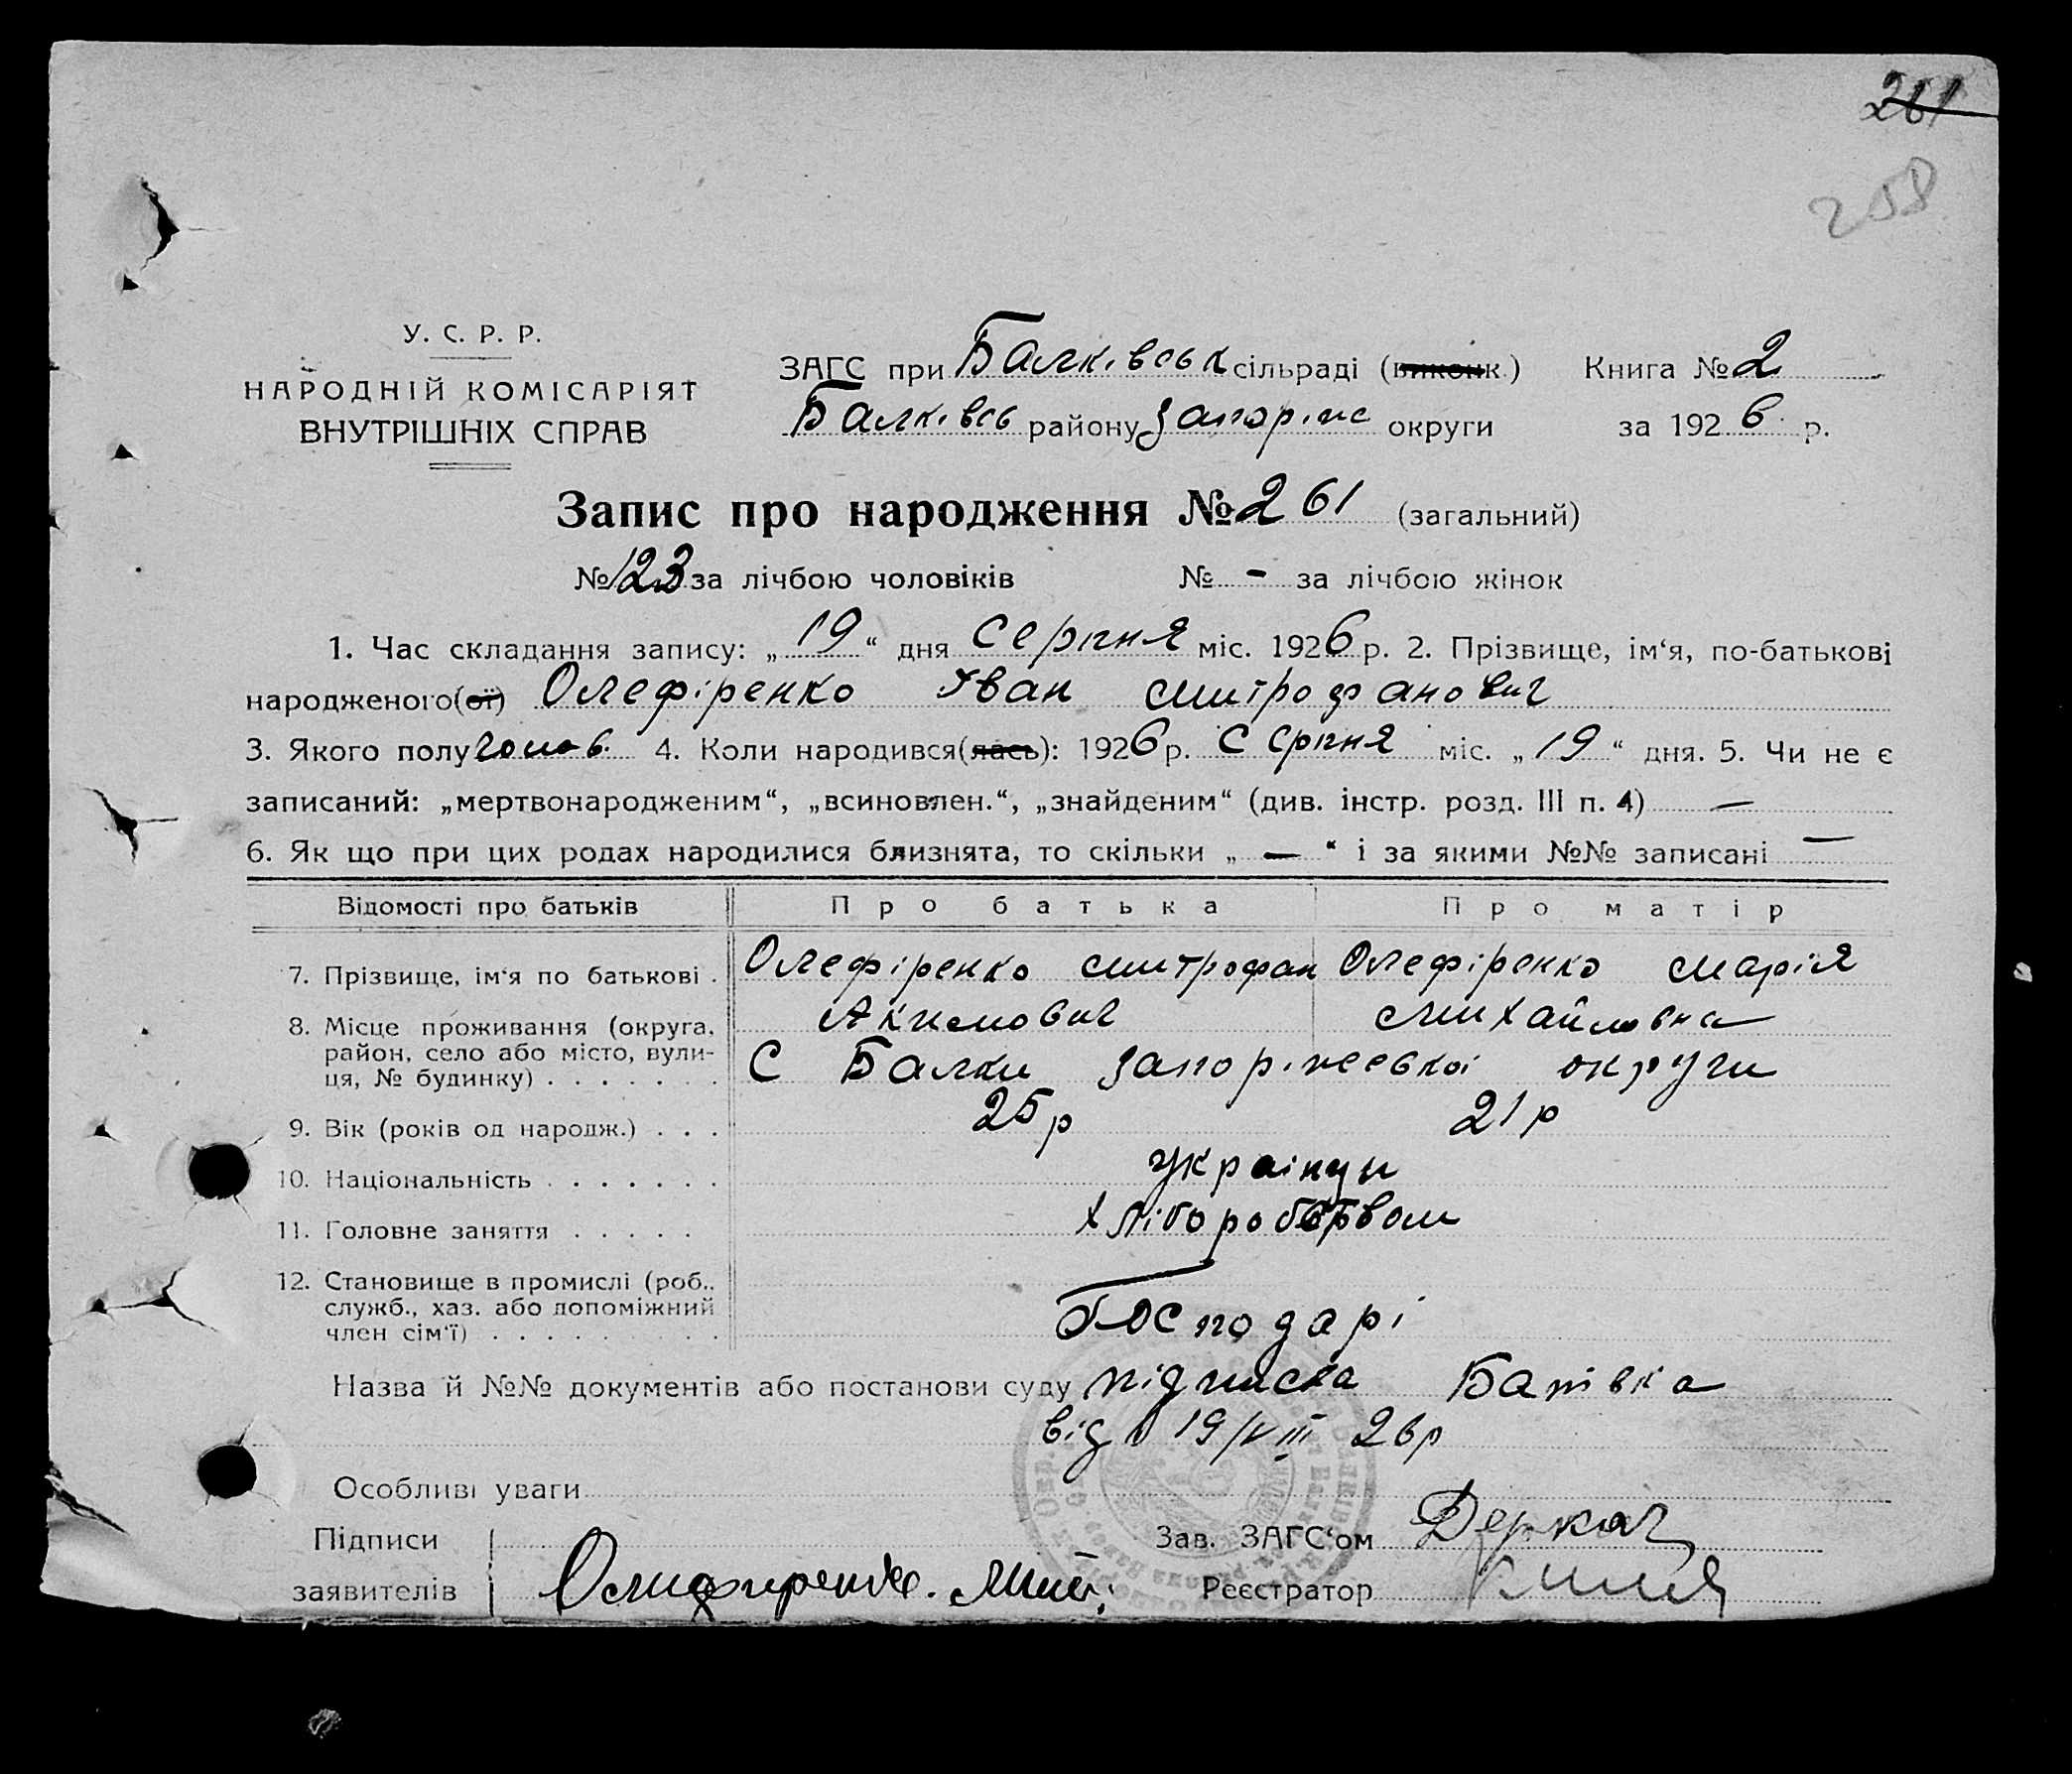 261
258
У. С. Р. Р.
НАРОДНІЙ КОМІСАРІЯТ
ВНУТРІШНІХ СПРАВ
ЗАГС при Балківськ сільраді (виконк.) Книга № 2
Балківсь району Запоріж округи за 1926 р.
Запис про народження № 261 (загальний)
№ 123 за лічбою чоловіків № - за лічбою жінок
1. Час складання запису: „ 19 “ дня Серпня міс. 1926 р. 2. Прізвище, ім‘я, по-батькові
народженого(ої) Олефіренко Іван Митрофанович
3. Якого полу чолов. 4. Коли народився(лась): 1926 р. Серпня міс. „ 19 “ дня. 5. Чи не є
записаний: „мертвонародженим“, „всиновлен.“, „знайденим“ (див. інстр. розд. III п. 4) —
6. Як що при цих родах народилися близнята, то скільки „ — “ і за якими №№ записані —
Відомості про батьків Про батька Про матір
7. Прізвище, ім‘я по батькові . Олефіренко Митрофан Акимович Олефіренко Марія Михайловна
8. Місце проживання (округа,
район, село або місто, вули-
ця, № будинку) . . . . . . . С Балки Запоріжської округи
9. Вік (років од народж.) . . . 25 р 21 р
10. Національність . . . . . . . українци
11. Головне заняття . . . . . хліборобством
12. Становище в промислі (роб.,
служб., хаз. або допоміжний
член сім‘ї) . . . . . . . . Господарі
Назва й №№ документів або постанови суду підписка Батівка
від 19/VIII 26 р
Особливі уваги
Підписи Зав. ЗАГС‘ом Деркач
заявителів Олифиренко. Мит. Реєстратор